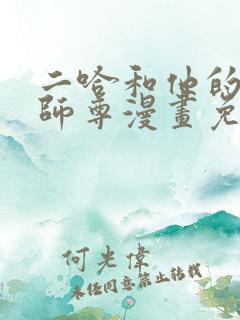 二哈和他的
師尊漫畫免
何光偉
未經同意禁止轉載